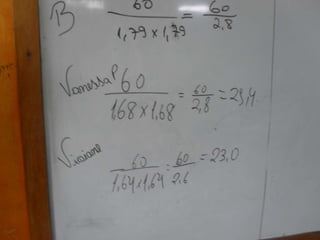 B 60/1,79x1,79 = 60/2,8
Vanessa P 60/1,68x1,68 = 60/2,8 = 29,4
Viviane 60/1,64x1,64 = 60/2,6 = 23,0